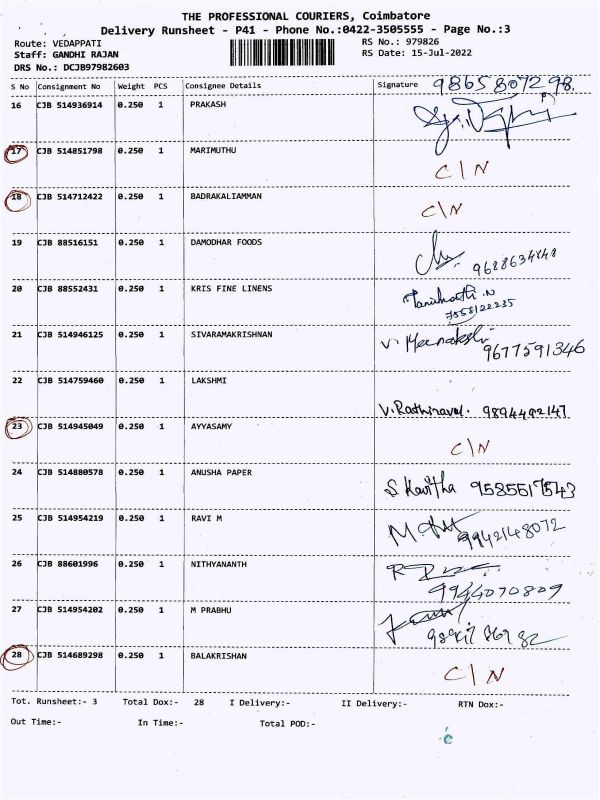 THE PROFESSIONAL COURIERS, Coimbatore
Delivery Runsheet - P41 - Phone No.:0422-3505555 - Page No.:3
Route: VEDAPPATI RS No.: 979826
Staff: GANDHI RAJAN RS Date: 15-Jul-2022
DRS No.: DCJB97982603
S No Consignment No Weight PCS Consignee Details Signature 9865807298.
16 CJB 514936914 0.250 1 PRAKASH
17 CJB 514851798 0.250 1 MARIMUTHU C/N
18 CJB 514712422 0.250 1 BADRAKALIAMMAN C/N
19 CJB 88516151 0.250 1 DAMODHAR FOODS
20 CJB 88552431 0.250 1 KRIS FINE LINENS
21 CJB 514946125 0.250 1 SIVARAMAKRISHNAN V. Meenakshi 9677591346
22 CJB 514759460 0.250 1 LAKSHMI V. Rathinavel. 9894492147
23 CJB 514945049 0.250 1 AYYASAMY C/N
24 CJB 514880578 0.250 1 ANUSHA PAPER S Kavitha 9585517543
25 CJB 514954219 0.250 1 RAVI M 9942148072
26 CJB 88601996 0.250 1 NITHYANANTH 9944070809
27 CJB 514954202 0.250 1 M PRABHU
28 CJB 514689298 0.250 1 BALAKRISHAN C/N
Tot. Runsheet:- 3 Total Dox:- 28 I Delivery:- II Delivery:- RTN Dox:-
Out Time:- In Time:- Total POD:-